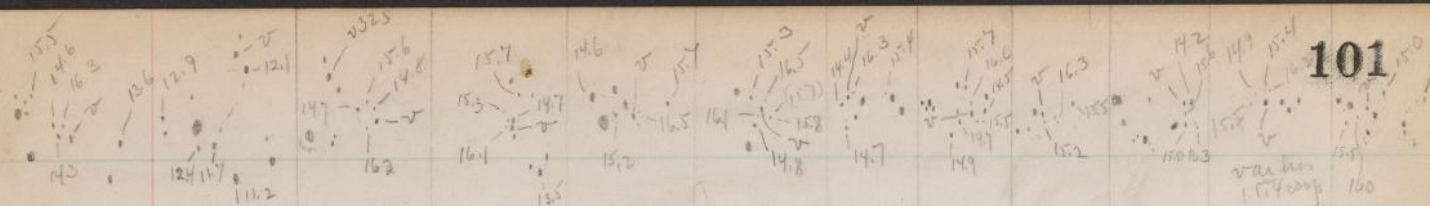 101
15.5
14.6
16.3
v
14.3
13.6
12.9
v
12.1
12.4 11.7
11.2
v325
15.6
14.8
14.7
v
16.2
15.7
15.3
14.7
v
16.1
13.5
14.6
v
15.7
16.5
15.2
15.3
16.5
(15.7)
16.1
15.8
v
14.8
14.4
v
16.3
15.4
14.7
15.7
16.6
14.5
v
15.5
14.7
14.9
v
16.3
15.5
15.2
v
14.2
15.6
15.0 16.3
14.9
15.4
15.8
v
var has
15.4 comp
15.0
15.5
16.0